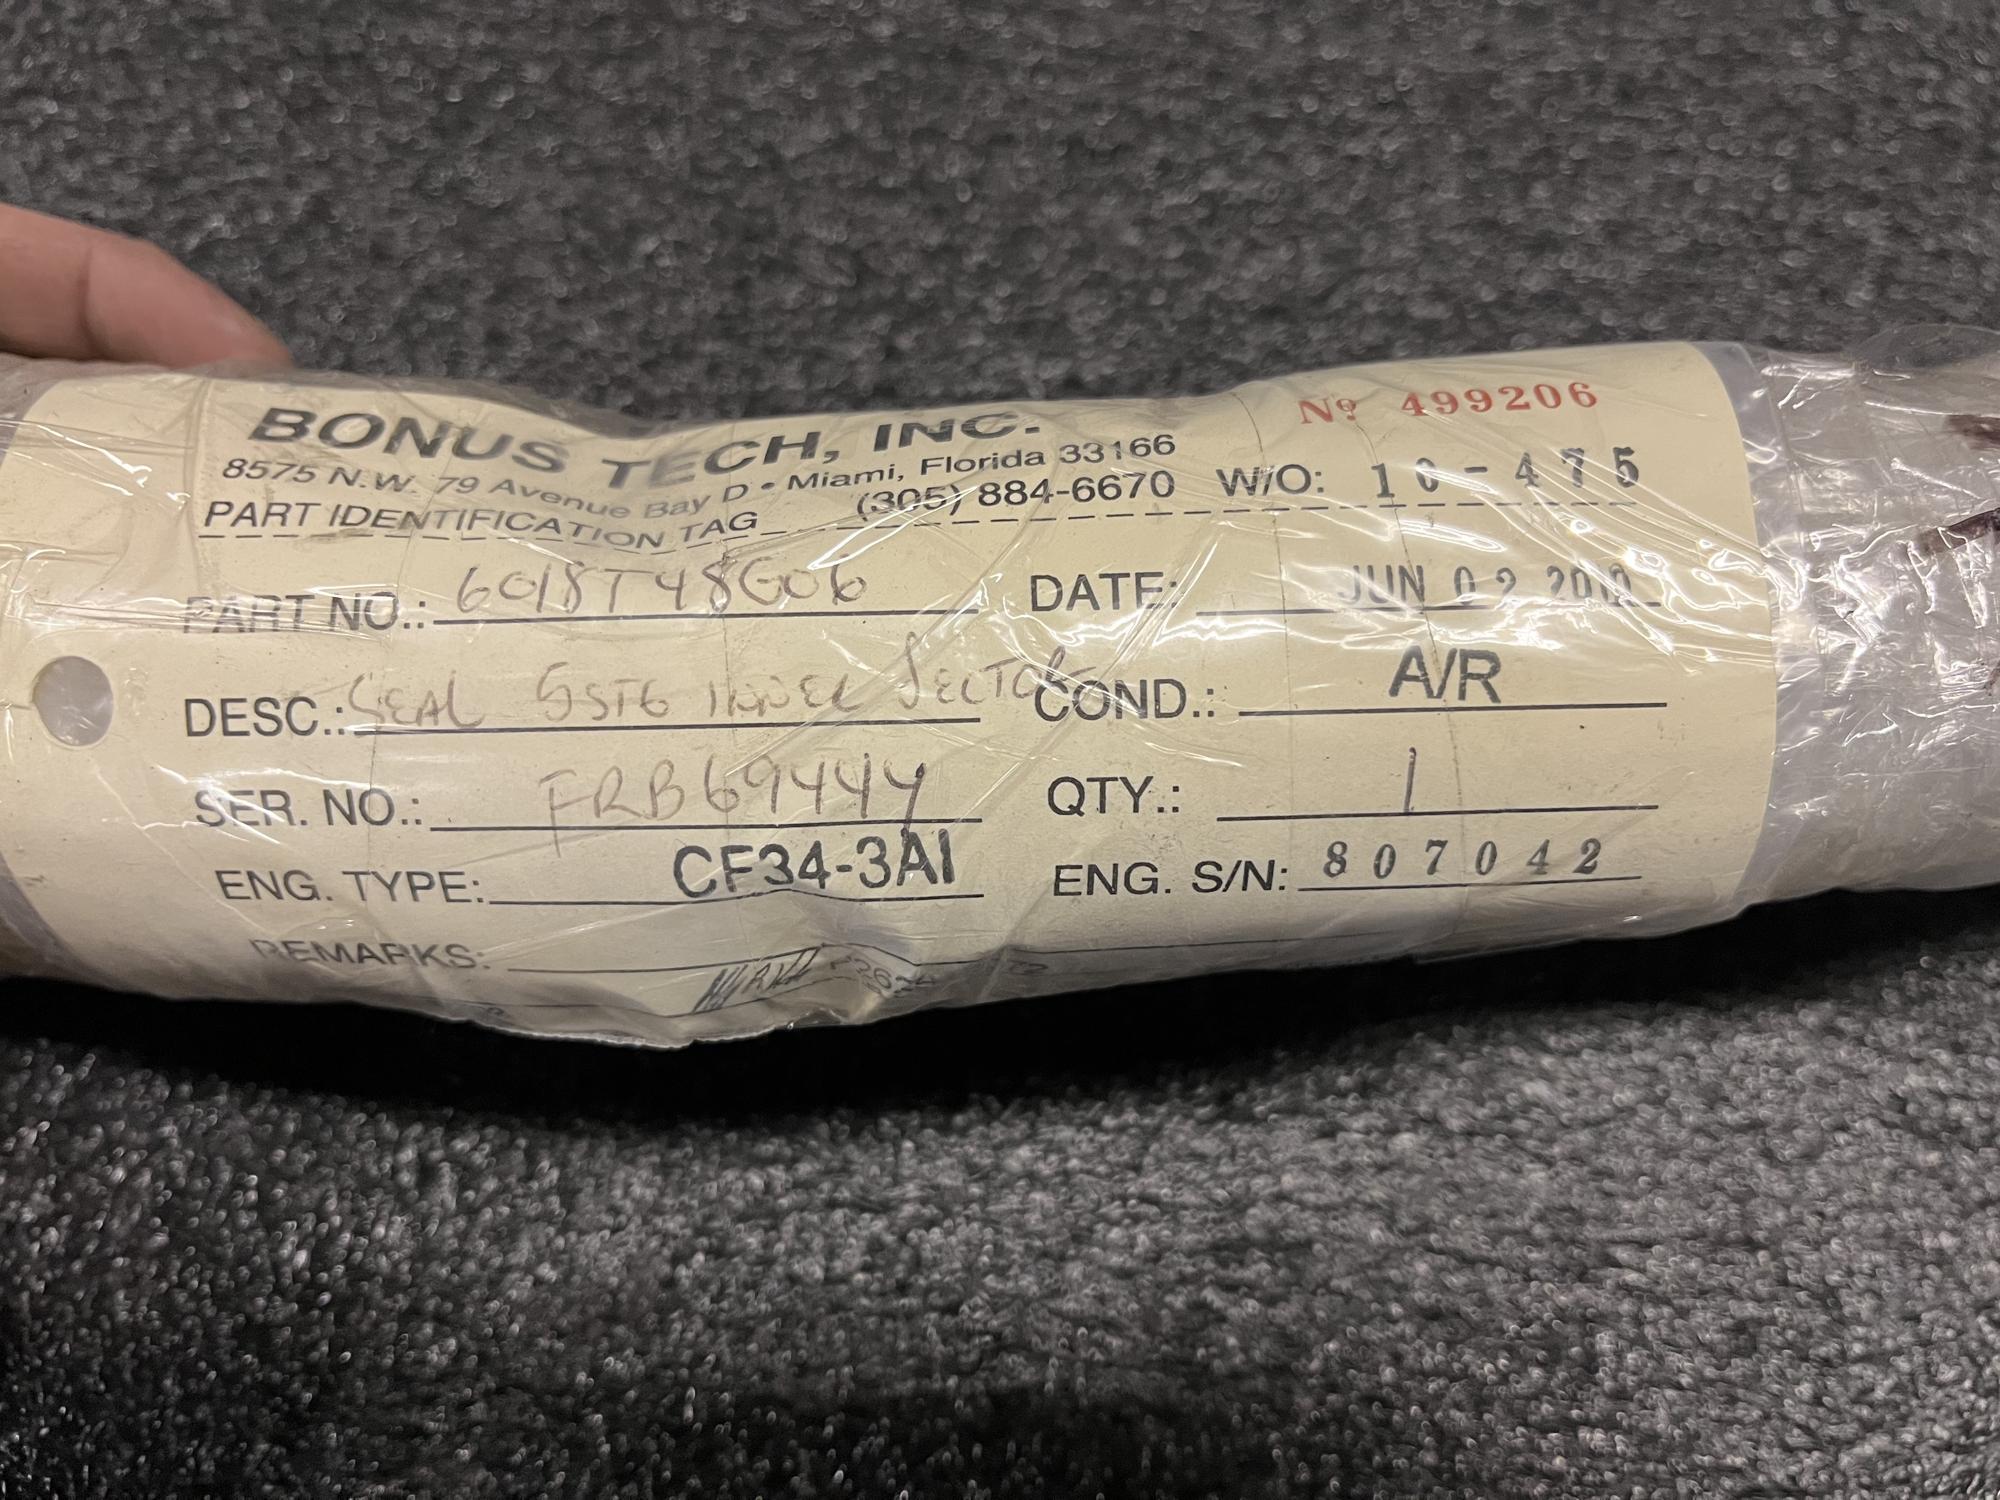 BONUS TECH, INC.
Nº 499206
8575 N.W. 79 Avenue Bay D • Miami, Florida 33166
PART IDENTIFICATION TAG (305) 884-6670 W/O: 10-475
PART NO.: 6018T48G06 DATE: JUN 02 2010
DESC.: SEAL 5STG INNER SECTOR COND.: A/R
SER. NO.: FRB69444 QTY.: 1
ENG. TYPE: CF34-3A1 ENG. S/N: 807042
REMARKS: